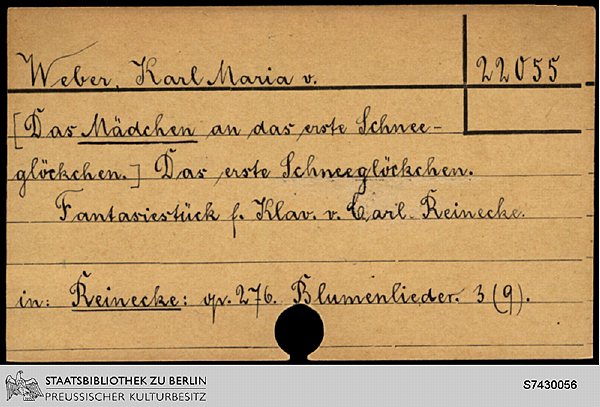 Weber, Karl Maria v.
22055
[Das Mädchen an das erste Schnee-
glöckchen.] Das erste Schneeglöckchen.
Fantasiestück f. Klav. v. Carl Reinecke.
in: Reinecke: op. 276. Blumenlieder. 3 (9).
STAATSBIBLIOTHEK ZU BERLIN
PREUSSISCHER KULTURBESITZ
S7430056